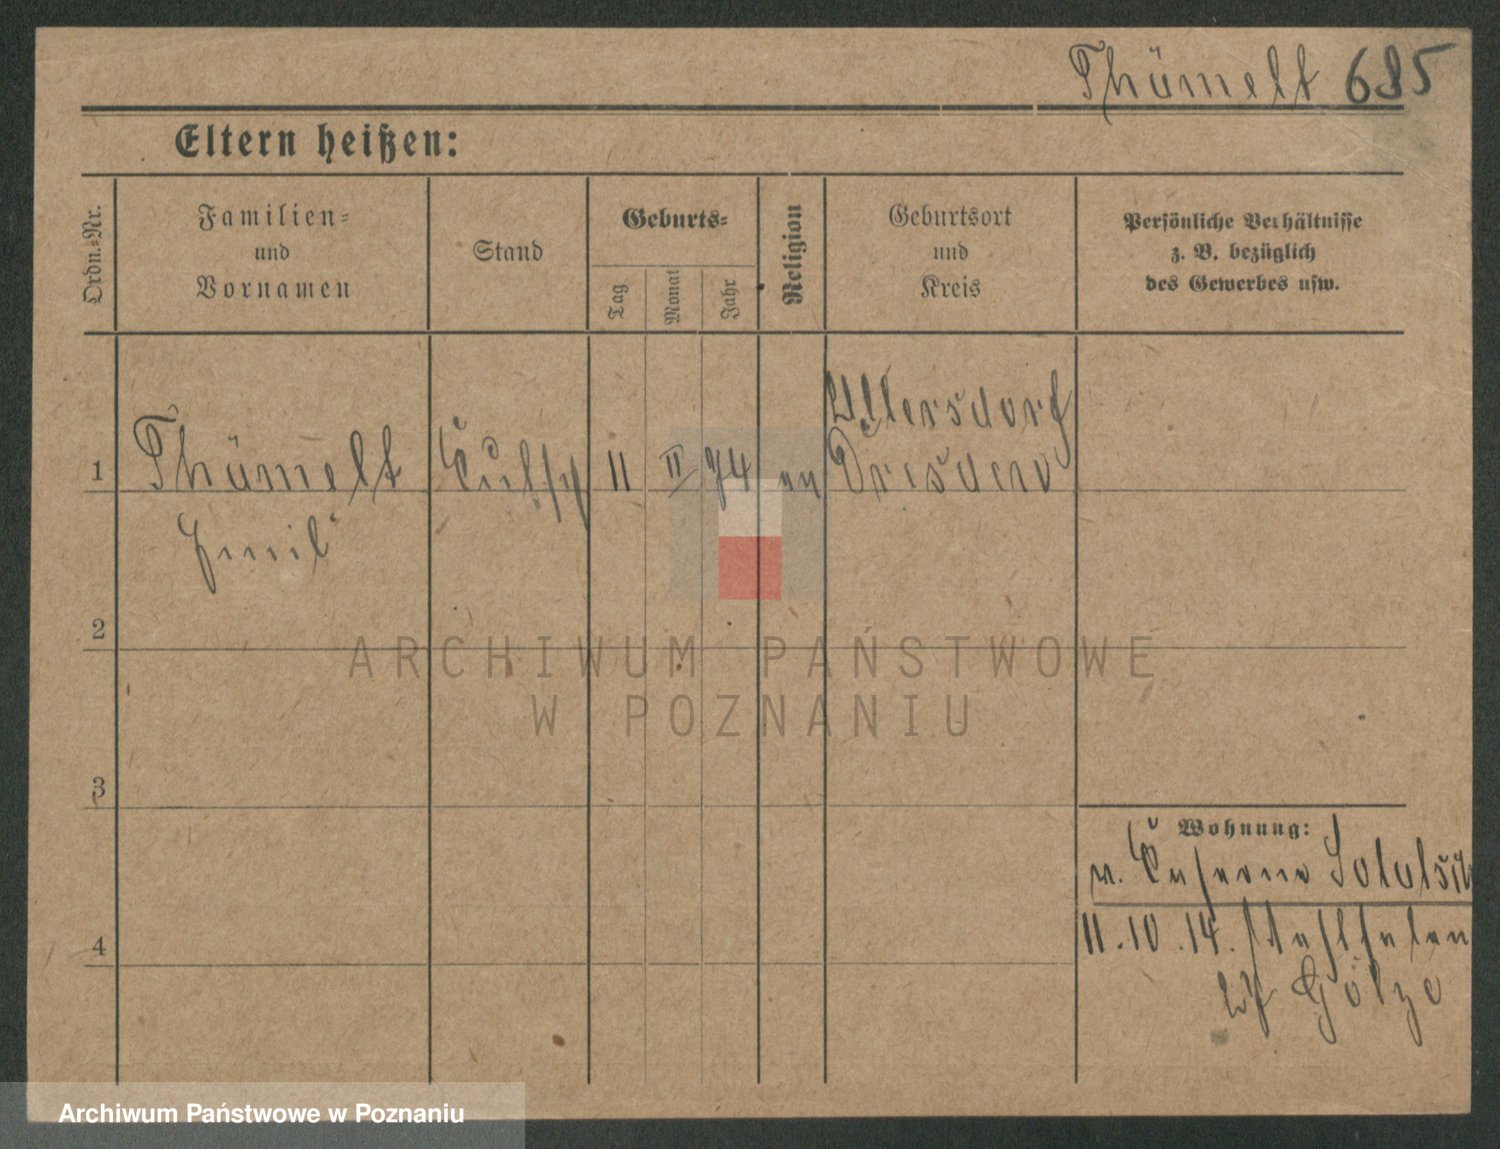 Thümelt 685
Eltern heißen:
Ordn.-Nr.
Familien-
und
Vornamen
Stand
Geburts-
Tag
Monat
Jahr
Religion
Geburtsort
und
Kreis
Persönliche Verhältnisse
z. B. bezüglich
des Gewerbes usw.
Ullersdorf
1 Thümelt 11 II 74 ev Dresden
Emil
2
ARCHIWUM PAŃSTWOWE
W POZNANIU
3
Wohnung:
v.
4
11.10.14.
Götze
Archiwum Państwowe w Poznaniu